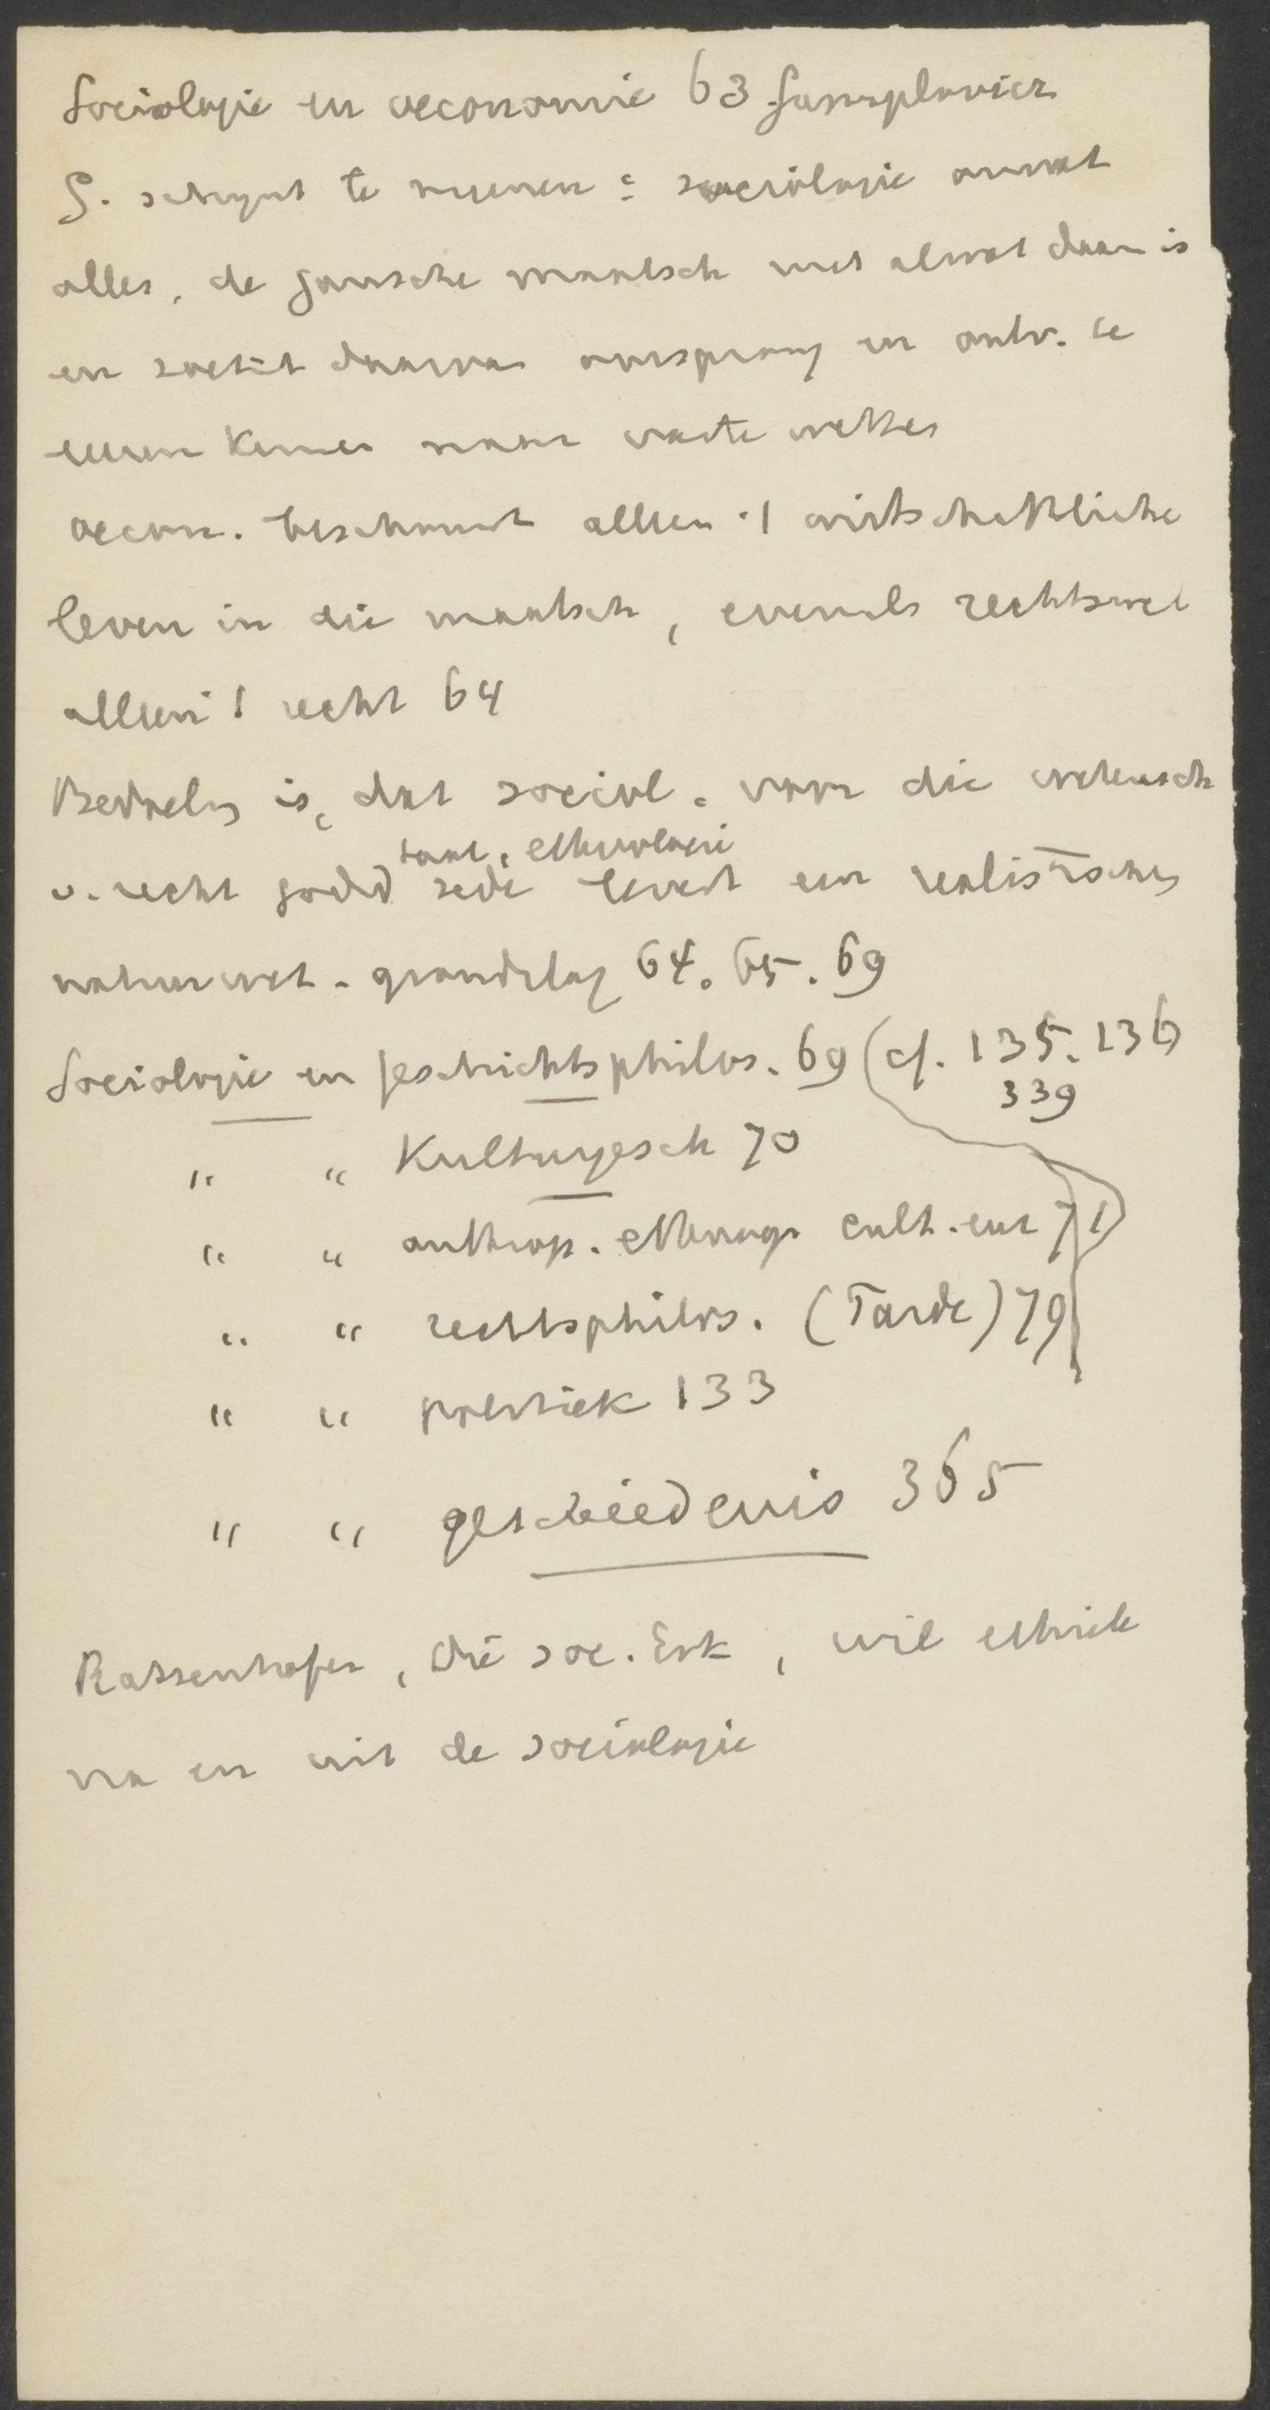 Sociologie en oeconomie 63 Gumplovicz
G. schynt te meenen: sociologie omvat
alles, de gansche maatsch met alwat daar is
en zoekt daarvan oorsprong en ontw. te
leeren kennen naar vaste wetten
oecon. beschouwt alleen 't wirtschaftliche
leven in die maatsch, evenals rechtswet
alleen 't recht 64
Bedoeling is, dat sociol. voor die wetensch
taal, ethnologie
v. recht godsd zede levert een realistische
natuurwet. grondslag 64. 65. 69
Sociologie en Geschichtsphilos. 69 (cf. 135. 136
339
" " Kulturgesch 70
" " anthrop. ethnogr cult. 71
" " rechtsphilos. (Tarde) 79
" " politiek 133
" " geschiedenis 365
Ratzenhofer, Die soc. Erk, wil ethiek
na en uit de sociologie